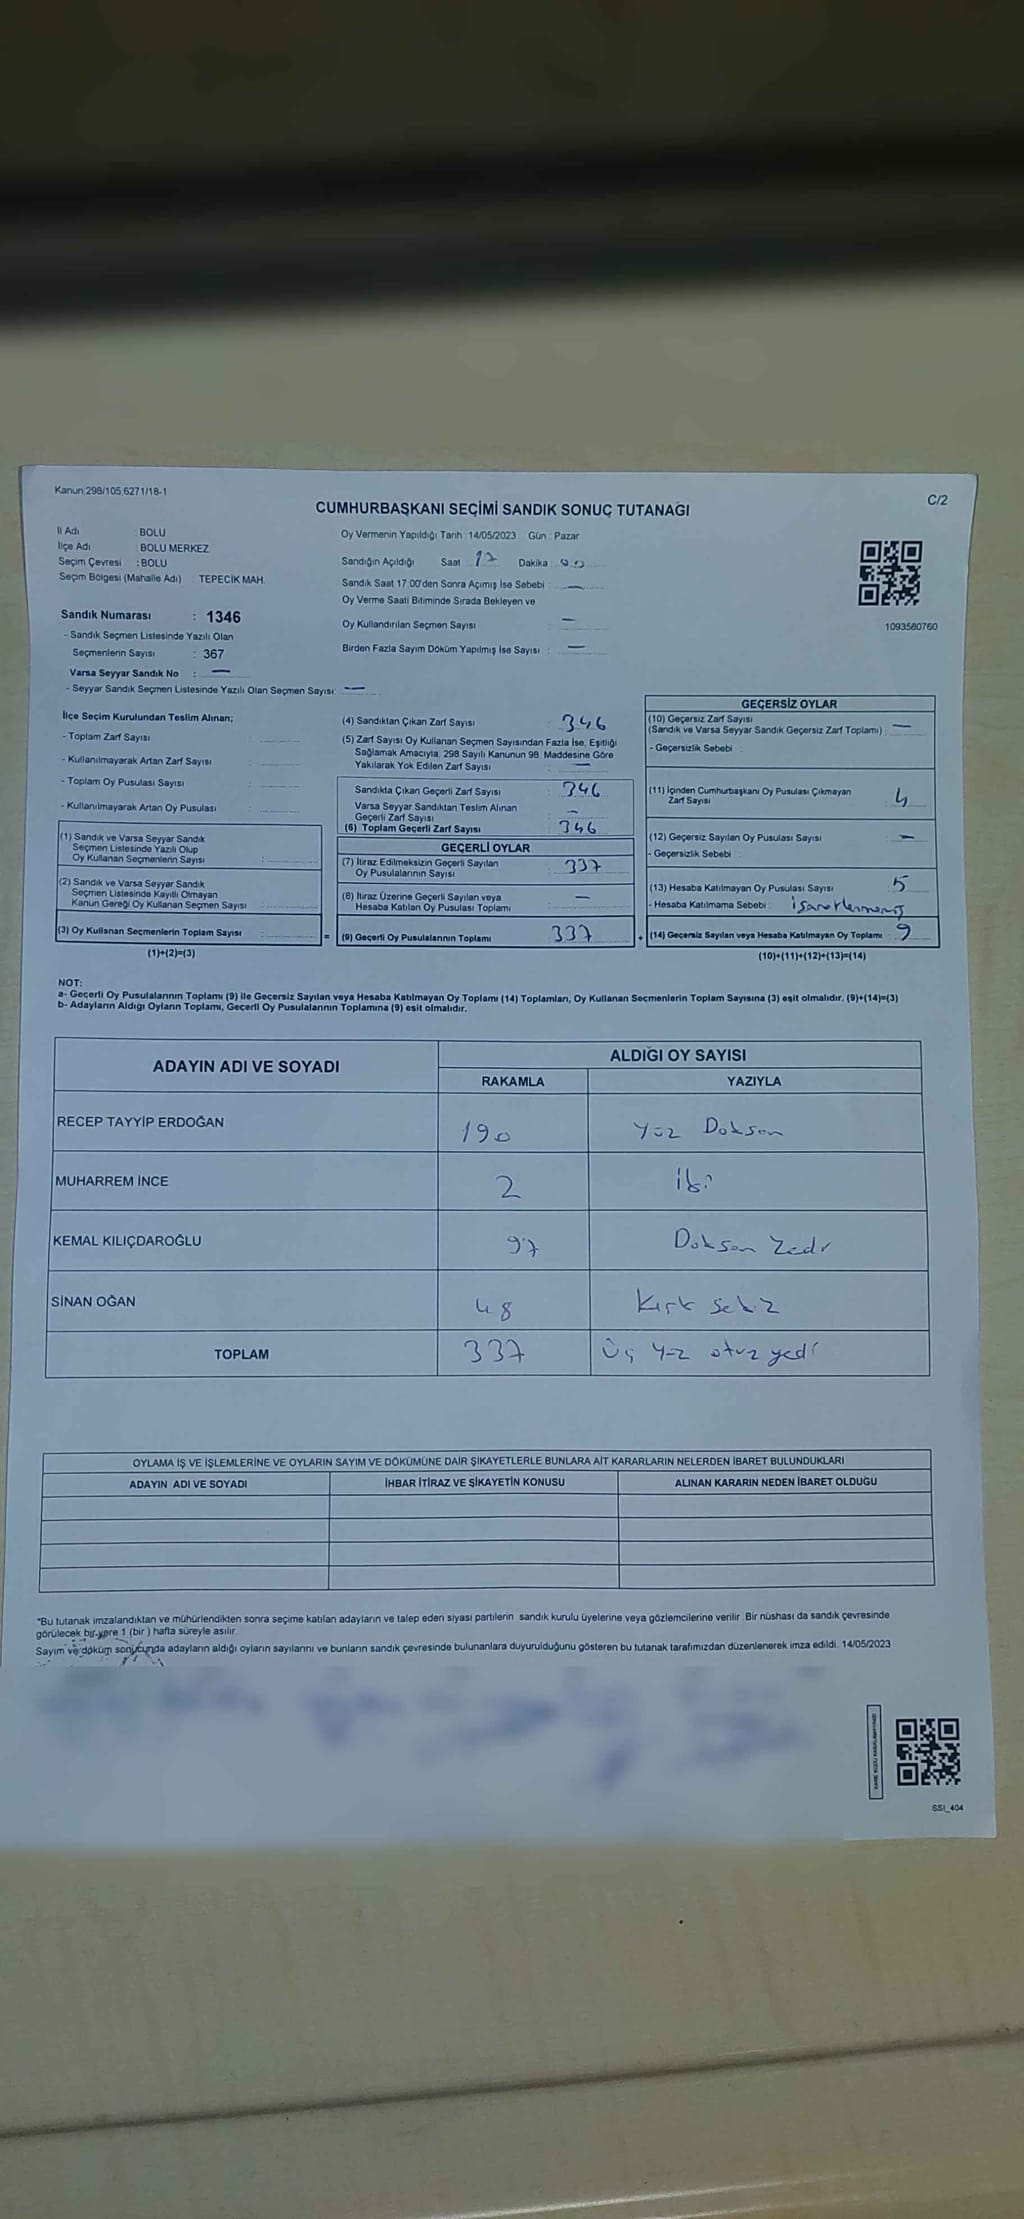 Kanun 298/105,6271/18-1
C/2
CUMHURBAŞKANI SEÇİMİ SANDIK SONUÇ TUTANAĞI
İl Adı : BOLU
İlçe Adı : BOLU MERKEZ
Seçim Çevresi : BOLU
Seçim Bölgesi (Mahalle Adı) : TEPECİK MAH.
Sandık Numarası : 1346
- Sandık Seçmen Listesinde Yazılı Olan
Seçmenlerin Sayısı : 367
Varsa Seyyar Sandık No : —
- Seyyar Sandık Seçmen Listesinde Yazılı Olan Seçmen Sayısı: —
Oy Vermenin Yapıldığı Tarih : 14/05/2023 Gün : Pazar
Sandığın Açıldığı Saat 17 Dakika 00
Sandık Saat 17.00'den Sonra Açımış İse Sebebi : —
Oy Verme Saati Bitiminde Sırada Bekleyen ve
Oy Kullandırılan Seçmen Sayısı : —
Birden Fazla Sayım Döküm Yapılmış İse Sayısı : —
1093580760
İlçe Seçim Kurulundan Teslim Alınan;
- Toplam Zarf Sayısı :
- Kullanılmayarak Artan Zarf Sayısı :
- Toplam Oy Pusulası Sayısı :
- Kullanılmayarak Artan Oy Pusulası :
(1) Sandık ve Varsa Seyyar Sandık
Seçmen Listesinde Yazılı Olup
Oy Kullanan Seçmenlerin Sayısı :
(2) Sandık ve Varsa Seyyar Sandık
Seçmen Listesinde Kayıtlı Olmayan
Kanun Gereği Oy Kullanan Seçmen Sayısı :
(3) Oy Kullanan Seçmenlerin Toplam Sayısı :
(1)+(2)=(3)
(4) Sandıktan Çıkan Zarf Sayısı : 346
(5) Zarf Sayısı Oy Kullanan Seçmen Sayısından Fazla İse, Eşitliği
Sağlamak Amacıyla, 298 Sayılı Kanunun 98. Maddesine Göre
Yakılarak Yok Edilen Zarf Sayısı : —
Sandıkta Çıkan Geçerli Zarf Sayısı : 346
Varsa Seyyar Sandıktan Teslim Alınan
Geçerli Zarf Sayısı : —
(6) Toplam Geçerli Zarf Sayısı : 346
GEÇERLİ OYLAR
(7) İtiraz Edilmeksizin Geçerli Sayılan
Oy Pusulalarının Sayısı : 337
(8) İtiraz Üzerine Geçerli Sayılan veya
Hesaba Katılan Oy Pusulası Toplamı : —
= (9) Geçerli Oy Pusulalarının Toplamı 337
GEÇERSİZ OYLAR
(10) Geçersiz Zarf Sayısı
(Sandık ve Varsa Seyyar Sandık Geçersiz Zarf Toplamı) : —
- Geçersizlik Sebebi :
(11) İçinden Cumhurbaşkanı Oy Pusulası Çıkmayan
Zarf Sayısı : 4
(12) Geçersiz Sayılan Oy Pusulası Sayısı : —
- Geçersizlik Sebebi :
(13) Hesaba Katılmayan Oy Pusulası Sayısı : 5
- Hesaba Katılmama Sebebi : işaretlenmemiş
+ (14) Geçersiz Sayılan veya Hesaba Katılmayan Oy Toplamı : 9
(10)+(11)+(12)+(13)=(14)
NOT:
a- Geçerli Oy Pusulalarının Toplamı (9) ile Geçersiz Sayılan veya Hesaba Katılmayan Oy Toplamı (14) Toplamları, Oy Kullanan Seçmenlerin Toplam Sayısına (3) eşit olmalıdır. (9)+(14)=(3)
b- Adayların Aldığı Oyların Toplamı, Geçerli Oy Pusulalarının Toplamına (9) eşit olmalıdır.
ADAYIN ADI VE SOYADI
ALDIĞI OY SAYISI
RAKAMLA YAZIYLA
RECEP TAYYİP ERDOĞAN 190 Yüz Doksan
MUHARREM İNCE 2 iki
KEMAL KILIÇDAROĞLU 97 Doksan Yedi
SİNAN OĞAN 48 Kırk Sekiz
TOPLAM 337 Üç Yüz otuz yedi
OYLAMA İŞ VE İŞLEMLERİNE VE OYLARIN SAYIM VE DÖKÜMÜNE DAİR ŞİKAYETLERLE BUNLARA AİT KARARLARIN NELERDEN İBARET BULUNDUKLARI
ADAYIN ADI VE SOYADI İHBAR İTİRAZ VE ŞİKAYETİN KONUSU ALINAN KARARIN NEDEN İBARET OLDUĞU
*Bu tutanak imzalandıktan ve mühürlendikten sonra seçime katılan adayların ve talep eden siyasi partilerin sandık kurulu üyelerine veya gözlemcilerine verilir. Bir nüshası da sandık çevresinde
görülecek bir yere 1 (bir) hafta süreyle asılır.
Sayım ve döküm sonucunda adayların aldığı oyların sayılarını ve bunların sandık çevresinde bulunanlara duyurulduğunu gösteren bu tutanak tarafımızdan düzenlenerek imza edildi. 14/05/2023
SSI_404